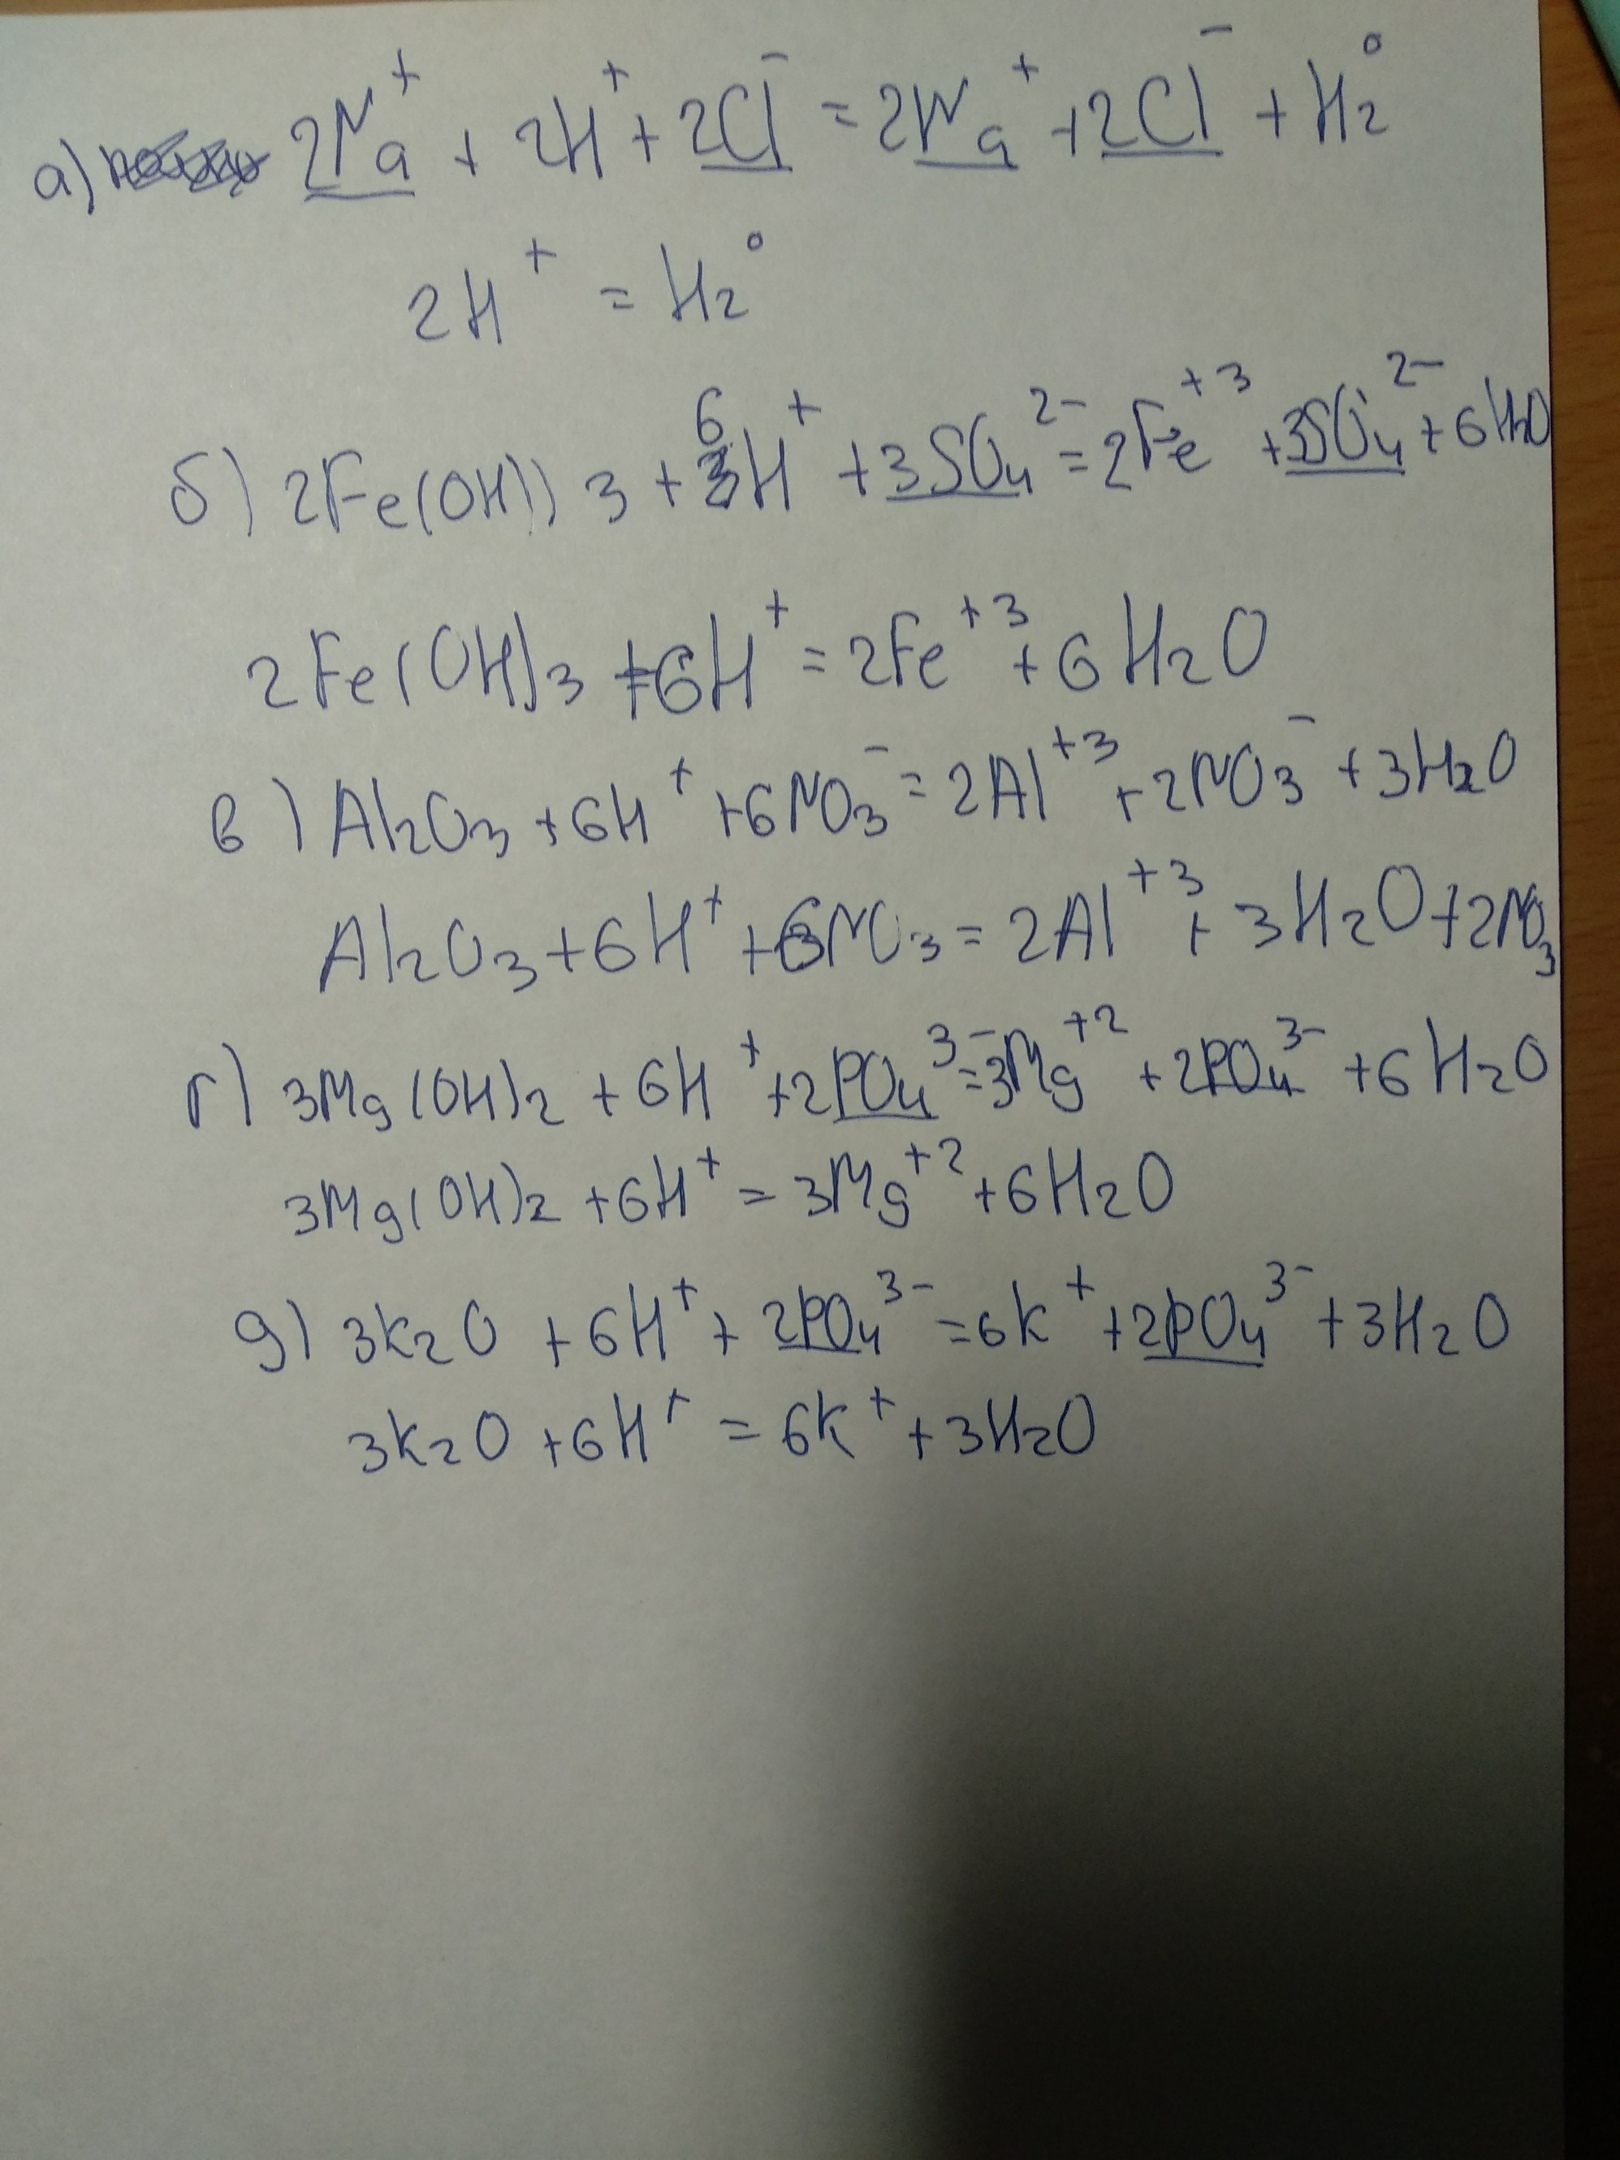 а) 2Na⁺ + 2H⁺ + 2Cl⁻ = 2Na⁺ + 2Cl⁻ + H₂⁰
2H⁺ = H₂⁰
б) 2Fe(OH))3 + 6H⁺ + 3SO₄²⁻ = 2Fe⁺³ + 3SO₄²⁻ + 6H₂O
2Fe(OH)₃ + 6H⁺ = 2Fe⁺³ + 6H₂O
в) Al₂O₃ + 6H⁺ + 6NO₃⁻ = 2Al⁺³ + 2NO₃⁻ + 3H₂O
Al₂O₃ + 6H⁺ + 6NO₃ = 2Al⁺³ + 3H₂O + 2NO₃
г) 3Mg(OH)₂ + 6H⁺ + 2PO₄³⁻ = 3Mg⁺² + 2PO₄³⁻ + 6H₂O
3Mg(OH)₂ + 6H⁺ = 3Mg⁺² + 6H₂O
д) 3K₂O + 6H⁺ + 2PO₄³⁻ = 6K⁺ + 2PO₄³⁻ + 3H₂O
3K₂O + 6H⁺ = 6K⁺ + 3H₂O